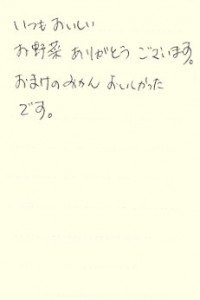 いつもおいしい
お野菜 ありがとう ございます。
おまけのみかん おいしかった
です。